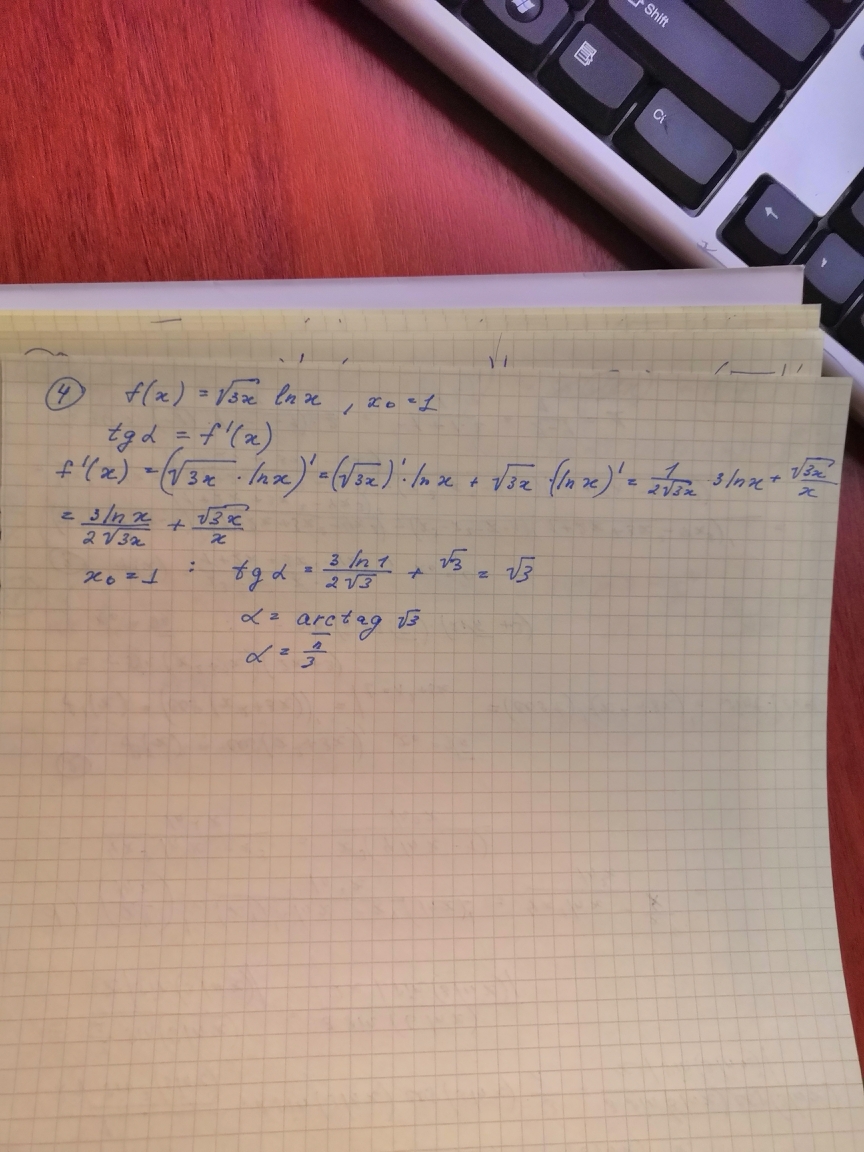 Shift
Ctrl
④ f(x) = √3x ln x , x₀ = 1
tg α = f'(x)
f'(x) = (√3x · ln x)' = (√3x)' · ln x + √3x · (ln x)' = 1/(2√3x) · 3 ln x + √3x/x
= 3 ln x/(2√3x) + √3x/x
x₀ = 1 : tg α = 3 ln 1/(2√3) + √3 = √3
α = arctag √3
α = π/3